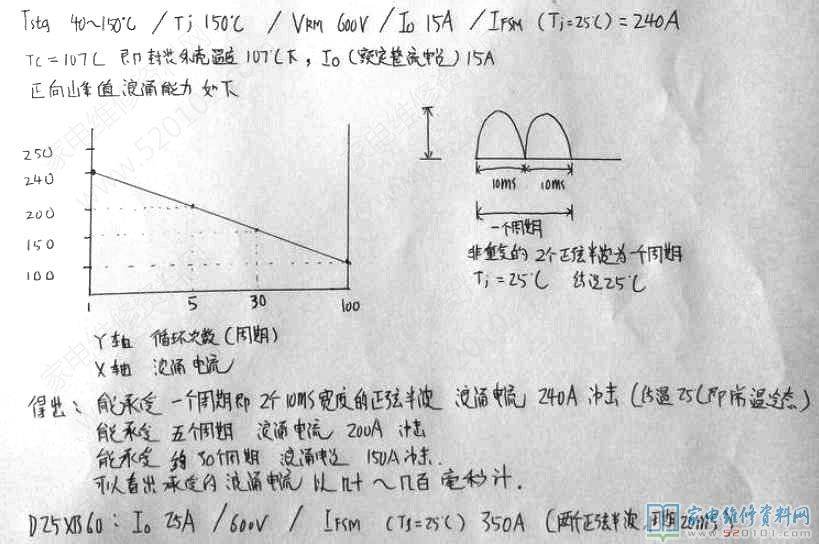 Tstg 40~150℃ / Tj 150℃ / VRM 600V / Io 15A / IFSM (Tj=25℃) = 240A
Tc = 107℃ 即封装外壳温度107℃下, Io (额定整流电流) 15A
正向峰值浪涌能力如下
250
240
200
150
100
1 5 30 100
10ms 10ms
一个周期
非重复的 2个正弦半波为一个周期
Tj = 25℃ 结温25℃
Y轴 循环次数(周期)
X轴 浪涌电流
得出: 能承受 一个周期即 2个10MS宽度的正弦半波 浪涌电流 240A 冲击 (结温25℃即常温状态)
能承受 五个周期 浪涌电流 200A 冲击
能承受 约30个周期 浪涌电流 150A冲击.
可以看出承受的浪涌电流 以几十~几百毫秒计.
D25XB60: Io 25A / 600V / IFSM (Tj=25℃) 350A (两个正弦半波
家电维修资料网
www.520101.com